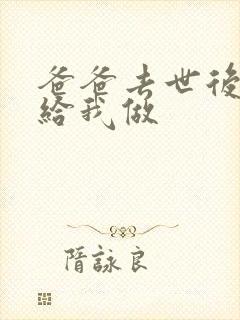 爸爸去世後
給我做
隋詠良